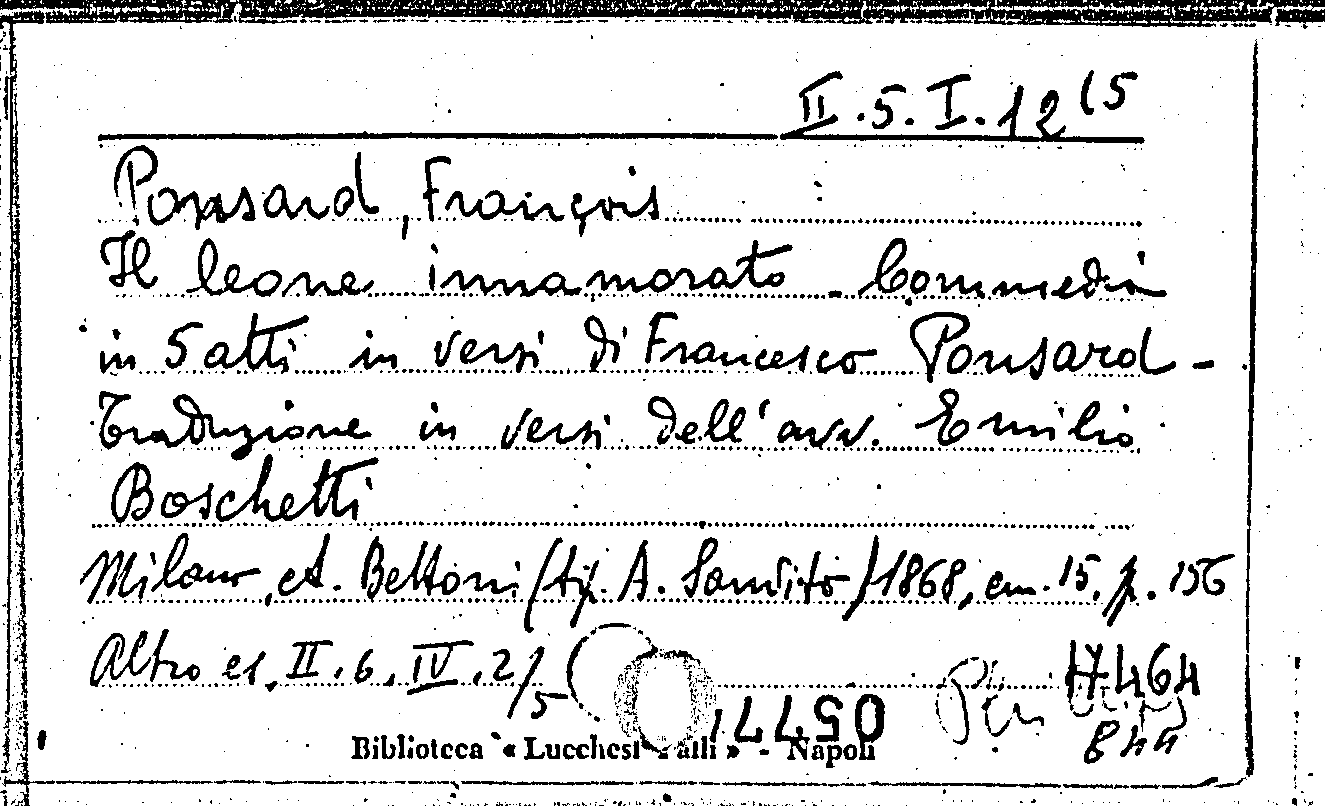 II.5.I.12(5
Ponsard, François
Il leone innamorato - Commedia
in 5 atti in versi di Francesco Ponsard -
Traduzione in versi dell'avv. Emilio
Boschetti
Milano, A. Bettoni (tip. A. Sandito) 1868, cm. 15. p. 156
Altro es. II.6.IV.2/5
17464
05771
844
Biblioteca « Lucchesi Palli » - Napoli